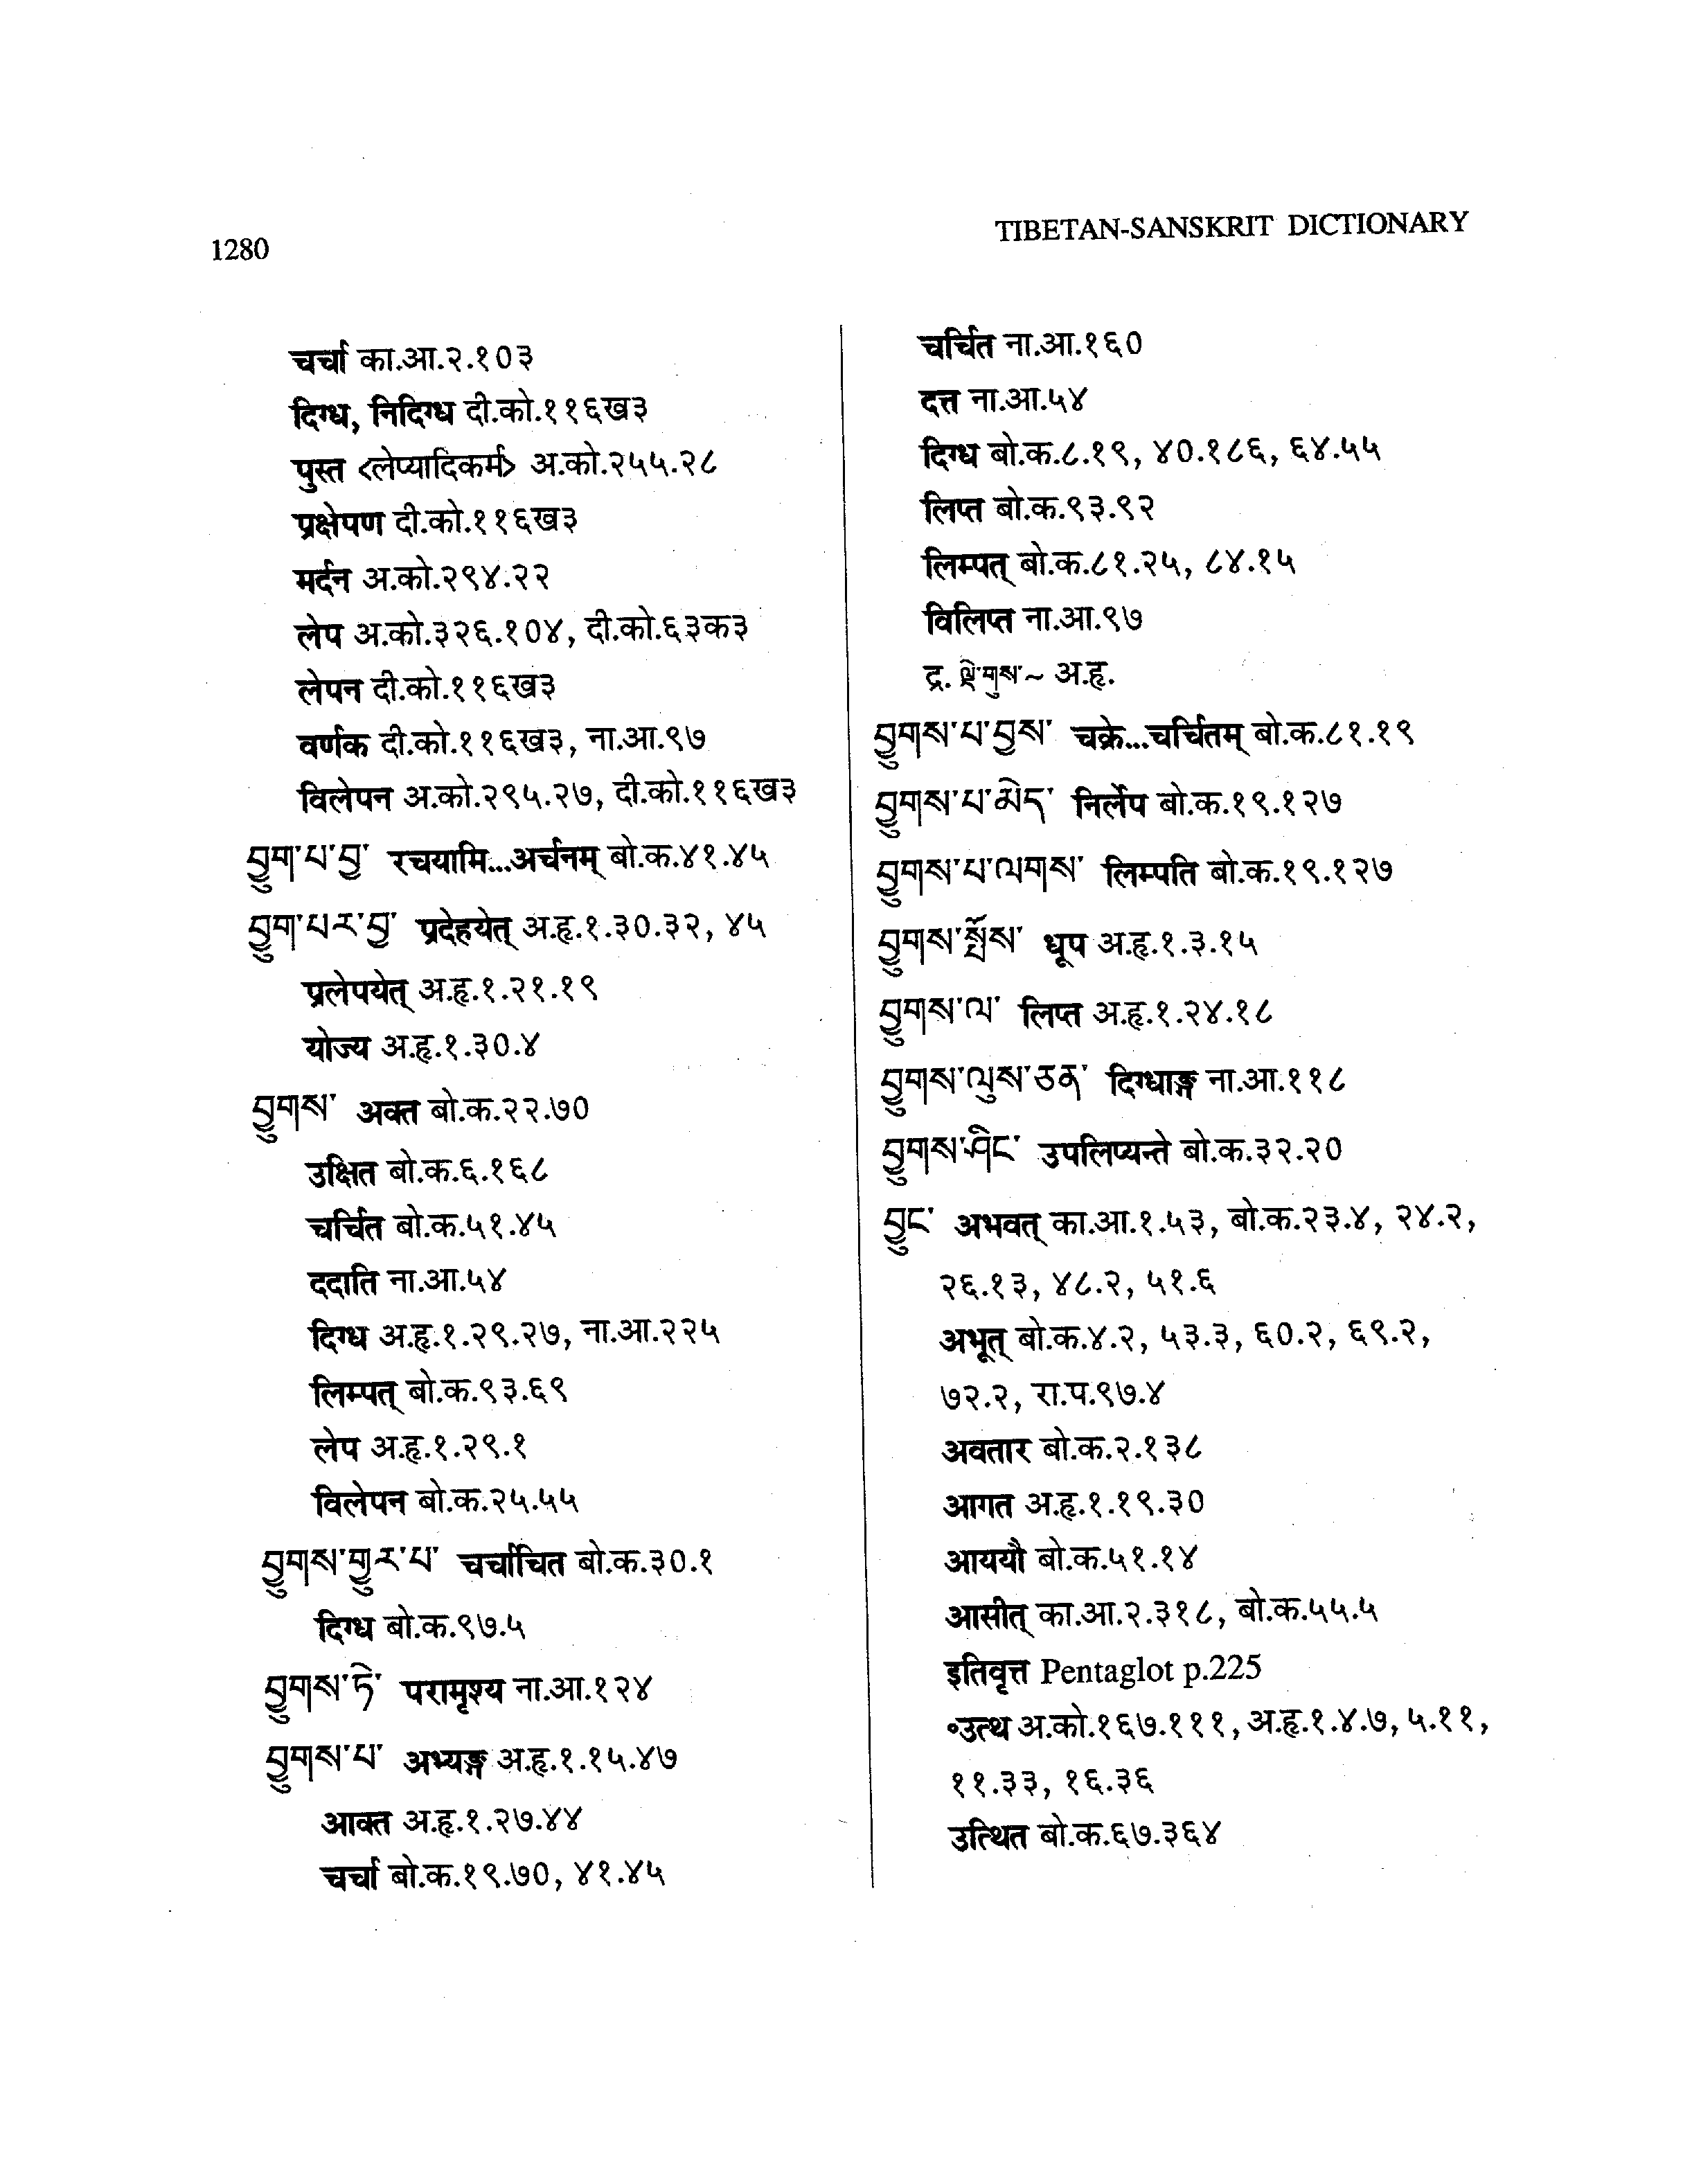 1280
TIBETAN-SANSKRIT DICTIONARY
चर्चा का.आ.२.१०३
दिग्ध, निदिग्ध दी.को.११६ख३
पुस्त <लेप्यादिकर्म> अ.को.२५५.२८
प्रक्षेपण दी.को.११६ख३
मर्दन अ.को.२९४.२२
लेप अ.को.३२६.१०४, दी.को.६३क३
लेपन दी.को.११६ख३
वर्णक दी.को.११६ख३, ना.आ.९७
विलेपन अ.को.२९५.२७, दी.को.११६ख३
བྱུག་པ་བྱ་ रचयामि...अर्चनम् बो.क.४१.४५
བྱུག་པར་བྱ་ प्रदेहयेत् अ.हृ.१.३०.३२, ४५
प्रलेपयेत् अ.हृ.१.२१.१९
योज्य अ.हृ.१.३०.४
བྱུགས་ अक्त बो.क.२२.७०
उक्षित बो.क.६.१६८
चर्चित बो.क.५१.४५
ददाति ना.आ.५४
दिग्ध अ.हृ.१.२९.२७, ना.आ.२२५
लिम्पत् बो.क.९३.६९
लेप अ.हृ.१.२९.१
विलेपन बो.क.२५.५५
བྱུགས་གྱུར་པ་ चर्चाचित बो.क.३०.१
दिग्ध बो.क.९७.५
བྱུགས་ཏེ་ परामृश्य ना.आ.१२४
བྱུགས་པ་ अभ्यङ्ग अ.हृ.१.१५.४७
आक्त अ.हृ.१.२७.४४
चर्चा बो.क.१९.७०, ४१.४५
चर्चित ना.आ.१६०
दत्त ना.आ.५४
दिग्ध बो.क.८.१९, ४०.१८६, ६४.५५
लिप्त बो.क.९३.९२
लिम्पत् बो.क.८१.२५, ८४.१५
विलिप्त ना.आ.९७
द्र. ལྡེ་གུས་~ अ.हृ.
བྱུགས་པ་བྱས་ चक्रे...चर्चितम् बो.क.८१.१९
བྱུགས་པ་མེད་ निर्लेप बो.क.१९.१२७
བྱུགས་པ་ལགས་ लिम्पति बो.क.१९.१२७
བྱུགས་སྤོས་ धूप अ.हृ.१.३.१५
བྱུགས་ལ་ लिप्त अ.हृ.१.२४.१८
བྱུགས་ལུས་ཅན་ दिग्धाङ्ग ना.आ.११८
བྱུགས་ཤིང་ उपलिप्यन्ते बो.क.३२.२०
བྱུང་ अभवत् का.आ.१.५३, बो.क.२३.४, २४.२,
२६.१३, ४८.२, ५१.६
अभूत् बो.क.४.२, ५३.३, ६०.२, ६९.२,
७२.२, रा.प.९७.४
अवतार बो.क.२.१३८
आगत अ.हृ.१.१९.३०
आययौ बो.क.५१.१४
आसीत् का.आ.२.३१८, बो.क.५५.५
इतिवृत्त Pentaglot p.225
॰उत्थ अ.को.१६७.१११, अ.हृ.१.४.७, ५.११,
११.३३, १६.३६
उत्थित बो.क.६७.३६४